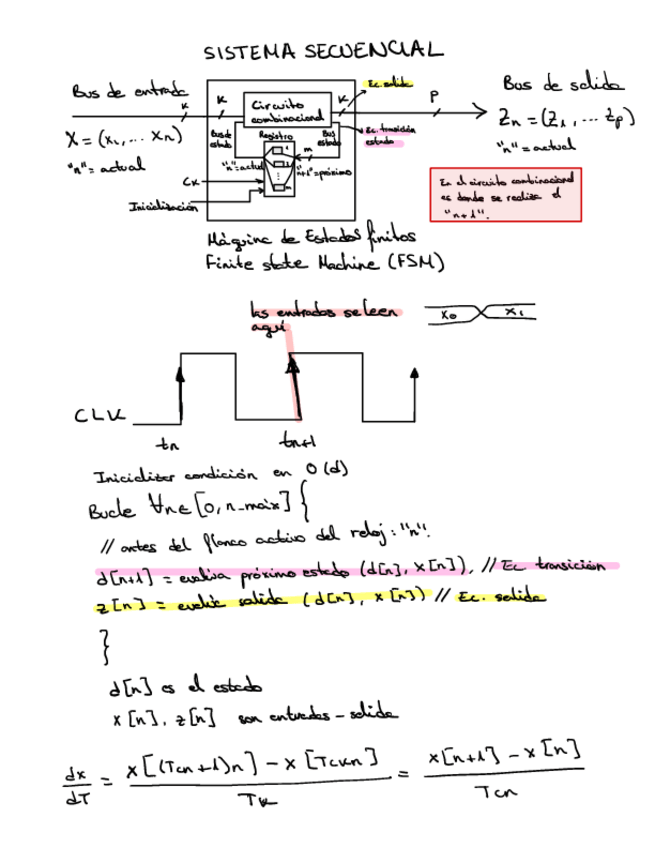 SISTEMA SECUENCIAL
Bus de entrada
K
X = (x₁, ... Xn)
"n" = actual
K
Circuito
combinacional
K
Ec. salida
P
Bus de salida
Zn = (Z1, ... Zp)
"n" = actual
Bus de
estado
Registro
Bus
estado
Ec. transición
estado
m
1
"n"=actual
"n+1"=próximo
m
CK
Inicialización
En el circuito combinacional
es donde se realiza el
"n+1".
Máquina de Estados finitos
Finite state Machine (FSM)
las entradas se leen
aquí
X0 X1
CLK
tn tn+1
Inicializar condición en 0 (d)
Bucle ∀n∈ [0, n_max] {
// antes del flanco activo del reloj: "n".
d[n+1] = evalúa próximo estado (d[n], x[n]), // Ec transición
z[n] = evalúa salida (d[n], x[n]) // Ec. salida
}
d[n] es el estado
x[n], z[n] son entradas-salida
dx/dT = x[(Tcn+1)n] - x[Tckn] / Tk = x[n+1] - x[n] / Tcn